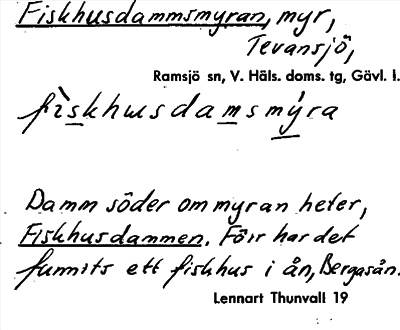 Fiskhusdammsmyran, myr,
Tevansjö,
Ramsjö sn, V. Häls. doms. tg, Gävl. l.
fìskhusdamsmýra
Damm söder om myran heter,
Fiskhusdammen. Förr har det
funnits ett fiskhus i ån, Bergasån.
Lennart Thunvall 19